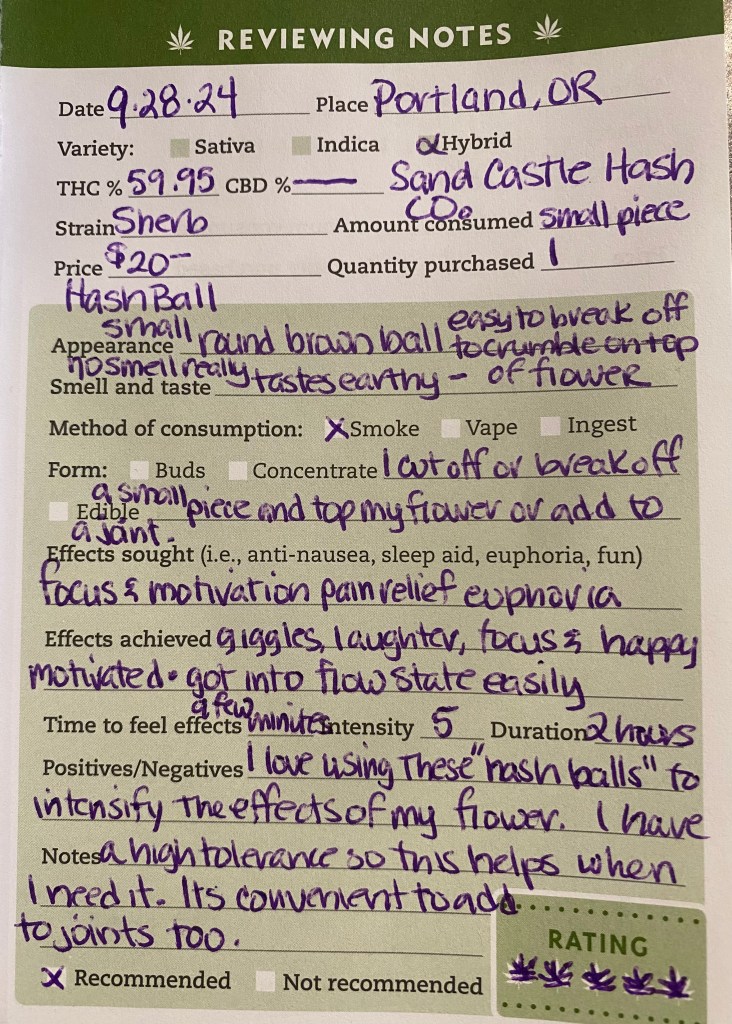 REVIEWING NOTES
Date 9.28.24 Place Portland, OR
Variety: Sativa Indica Hybrid
THC % 59.95 CBD % — Sand Castle Hash
CO.
Strain Sherb Amount consumed small piece
Price $20- Quantity purchased 1
Hash Ball
small easy to break off
Appearance round brown ball to crumble on top
no smell really
Smell and taste tastes earthy - of flower
Method of consumption: X Smoke Vape Ingest
Form: Buds Concentrate I cut off or break off
a small
Edible piece and top my flower or add to
a joint.
Effects sought (i.e., anti-nausea, sleep aid, euphoria, fun)
focus & motivation pain relief euphoria
Effects achieved giggles, laughter, focus & happy
motivated. got into flow state easily
a few
Time to feel effects minutes Intensity 5 Duration 2 hours
Positives/Negatives I love using these "hash balls" to
intensify the effects of my flower. I have
Notes a high tolerance so this helps when
I need it. Its convenient to add
to joints too.
RATING
X Recommended Not recommended